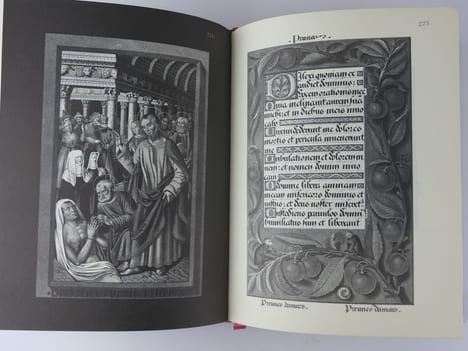 Prunas
Dilexi quoniam ex
audiet dominus:
vocem orationis mee
Quia inclinavit aurem sua
michi: et in diebus meis invo
cabo
Circumdederunt me dolores
mortis et pericula invenerunt
me
Tribulationem et dolorem
inveni: et nomen domini invo
cavi
O domine libera animam
meam misericors dominus et
iustus: et deus noster miseret
Custodiens parvulos domin
humiliatus sum et liberavit
Prunes damars
Prunes damars